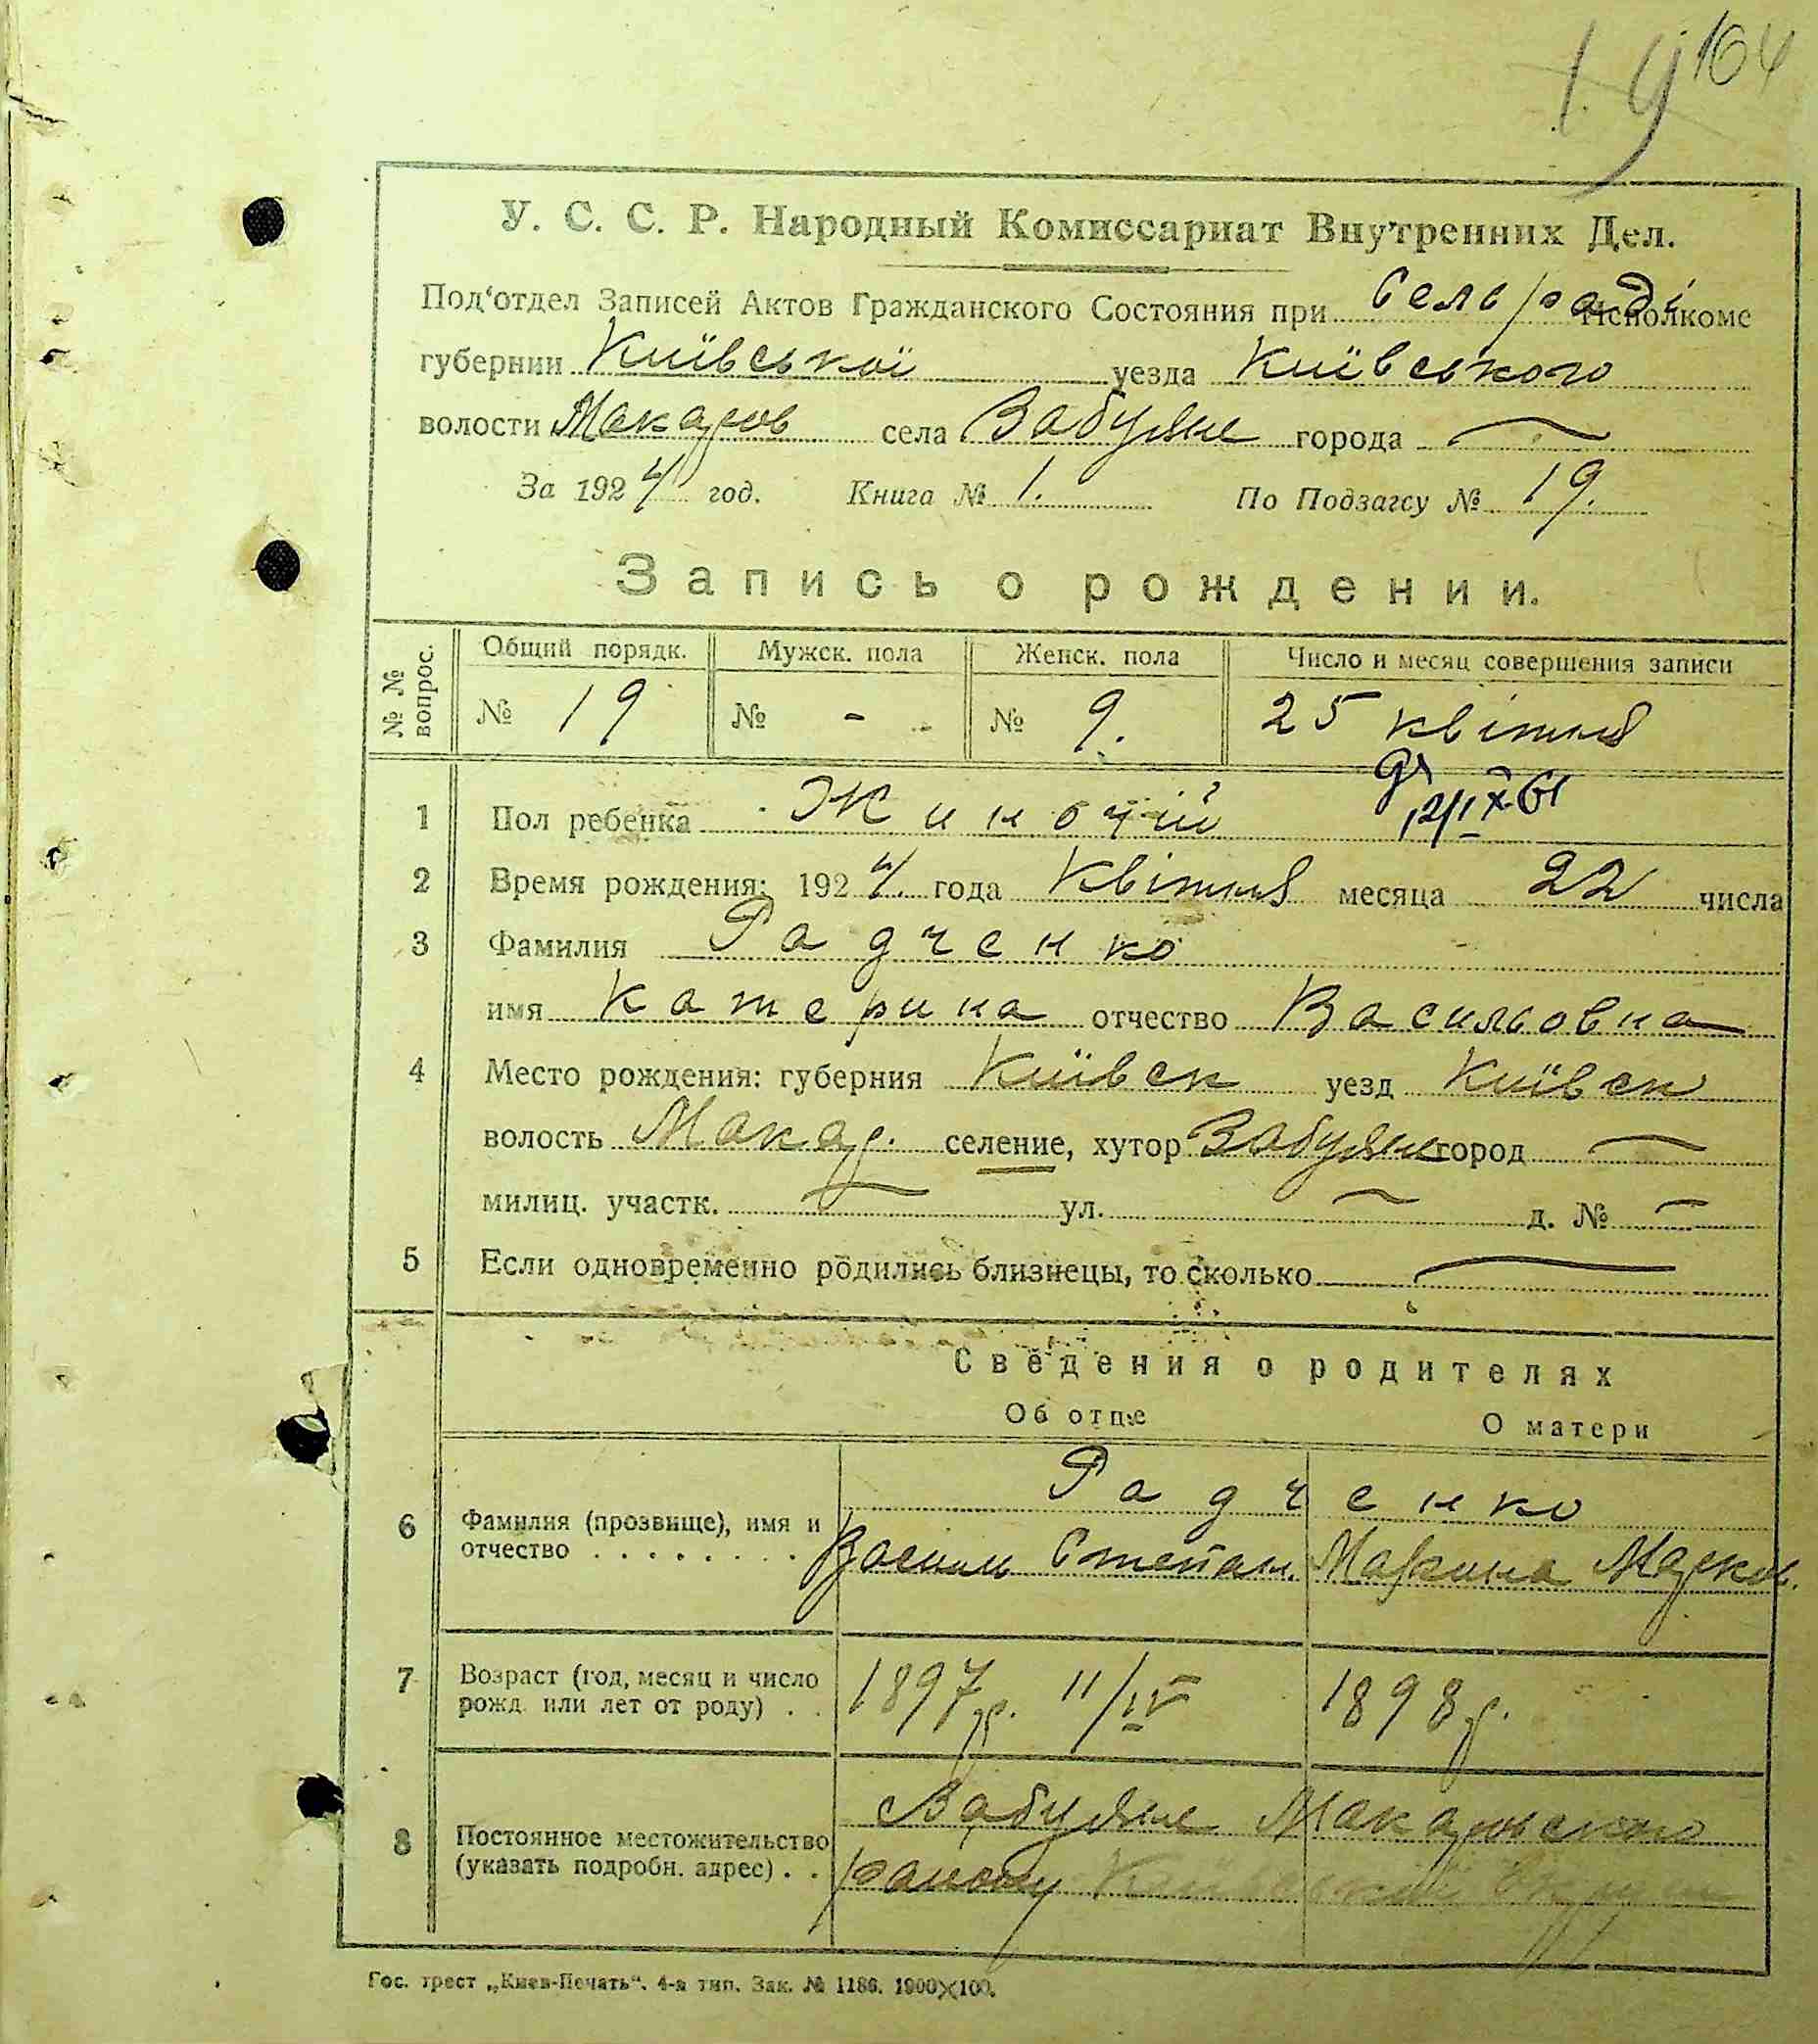 19 164
У. С. С. Р. Народный Комиссариат Внутренних Дел.
Под'отдел Записей Актов Гражданского Состояния при Сель/раді Исполкоме
губернии Київської уезда Київського
волости Макаров села Забуяне города —
За 1924 год. Книга № 1. По Подзагсу № 19.
Запись о рождении.
№ № вопрос. Общий порядк. Мужск. пола Женск. пола Число и месяц совершения записи
№ 19 № - № 9. 25 квітня
12/IX-61
1 Пол ребенка Жиночий
2 Время рождения: 1924. года Квітня месяца 22 числа
3 Фамилия Радченко
имя Катерина отчество Васильовна
4 Место рождения: губерния Київск уезд Київск
волость Макар. селение, хутор Забуяне город —
милиц. участк. — ул. — д. № —
5 Если одновременно родились близнецы, то сколько —
Сведения о родителях
Об отце О матери
Радченко
6 Фамилия (прозвище), имя и отчество . . . . . . . . Василь Степан. Марина Марков.
7 Возраст (год, месяц и число рожд. или лет от роду) . . 1897р. 11/IV 1898р.
Забуяне Макаровского
8 Постоянное местожительство (указать подробн. адрес) . . району Київської
Гос. трест „Киев-Печать“. 4-я тип. Зак. № 1186. 1900×100.